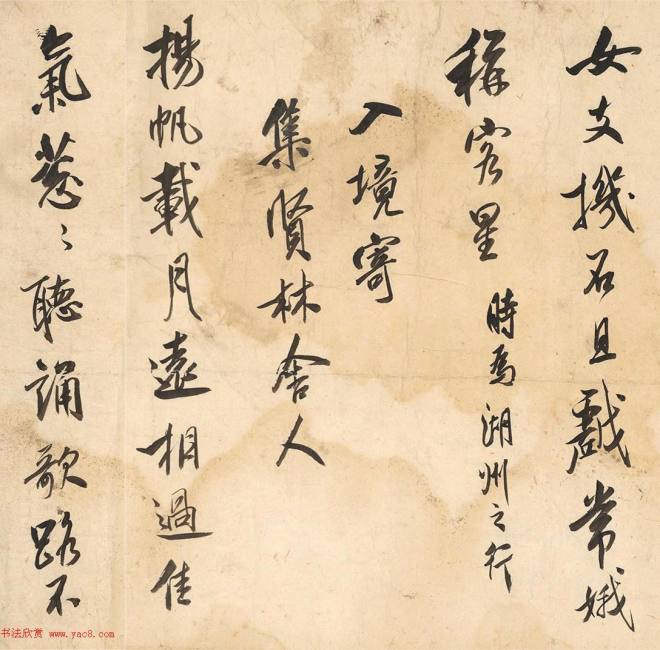 女支機石且戲常娥
稱客星 時爲湖州之行
入境寄
集賢林舍人
揚帆載月遠相過佳
氣葱〻聽誦歌路不
书法欣赏 www.yac8.com